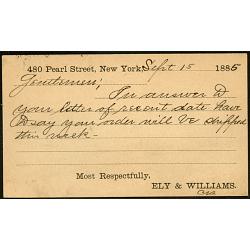 480 Pearl Street, New York, Sept 15 1885
Gentlemen;
In answer to
your letter of recent date have
to say your order will be shipped
this week-
Most Respectfully,
ELY & WILLIAMS.